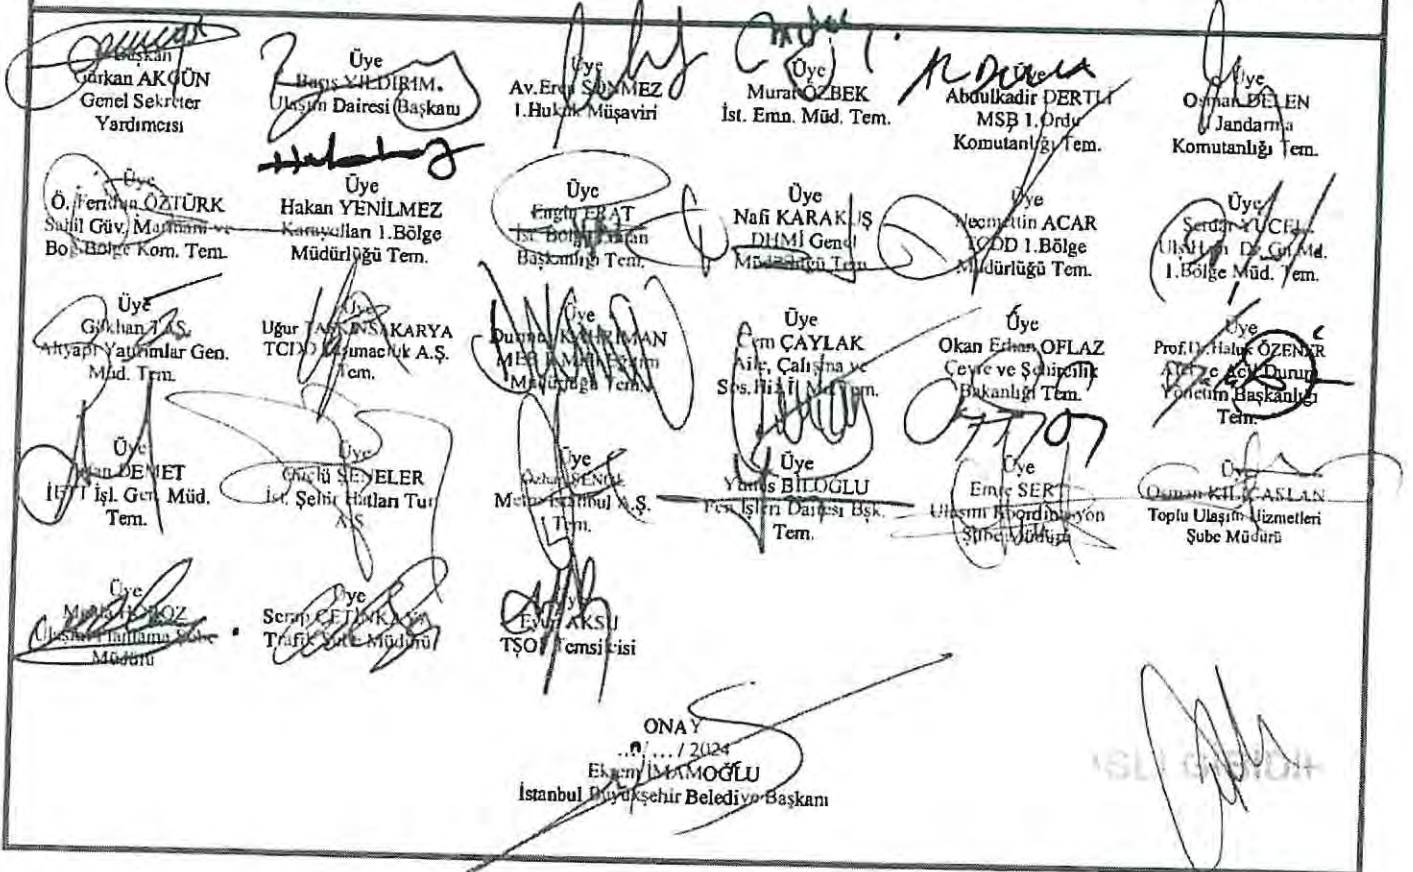 Başkan
Gürkan AKGÜN
Genel Sekreter
Yardımcısı
Üye
Barış YILDIRIM
Ulaşım Dairesi Başkanı
Üye
Av.Eren SÖNMEZ
1.Hukuk Müşaviri
Üye
Murat ÖZBEK
İst. Emn. Müd. Tem.
Üye
Abdulkadir DERTLİ
MSB 1.Ordu
Komutanlığı Tem.
Üye
Osman DELEN
Jandarma
Komutanlığı Tem.
Üye
Ö. Feridun ÖZTÜRK
Sahil Güv. Marmara ve
Boğ.Bölge Kom. Tem.
Üye
Hakan YENİLMEZ
Karayolları 1.Bölge
Müdürlüğü Tem.
Üye
Engin ERAT
İst. Bölge
Başkanlığı Tem.
Üye
Nafi KARAKUŞ
DHMİ Genel
Müdürlüğü Tem.
Üye
Necmettin ACAR
TCDD 1.Bölge
Müdürlüğü Tem.
Üye
Serdar YÜCEL
1.Bölge Müd. Tem.
Üye
Gökhan TAŞ
Altyapı Yatırımlar Gen.
Müd. Tem.
Üye
Uğur SAKARYA
TCDD Taşımacılık A.Ş.
Tem.
Üye
KAHRIMAN
MEB
Müdürlüğü Tem.
Üye
Cem ÇAYLAK
Aile, Çalışma ve
Sos. Hiz. İl Md. Tem.
Üye
Okan Erhan OFLAZ
Çevre ve Şehircilik
Bakanlığı Tem.
Üye
Prof.Dr.Haluk ÖZENER
Afet ve Acil Durum
Yönetim Başkanlığı
Tem.
Üye
DEMET
İETT İşl. Gen. Müd.
Tem.
Üye
Güçlü ŞENELER
İst. Şehir Hatları Tur.
A.Ş.
Üye
Metro İstanbul A.Ş.
Tem.
Üye
Yunus BİLOĞLU
Fen İşleri Dairesi Bşk.
Tem.
Üye
Emre SERT
Ulaşım Koordinasyon
Şube Müdürü
Üye
Osman KILIÇASLAN
Toplu Ulaşım Hizmetleri
Şube Müdürü
Üye
Ulaşım Planlama Şube
Müdürü
Üye
Serap ÇETİNKAYA
Trafik Şube Müdürü
Üye
Eyüp AKSU
TŞOF Temsilcisi
ONAY
/ ... / 2024
Ekrem İMAMOĞLU
İstanbul Büyükşehir Belediye Başkanı